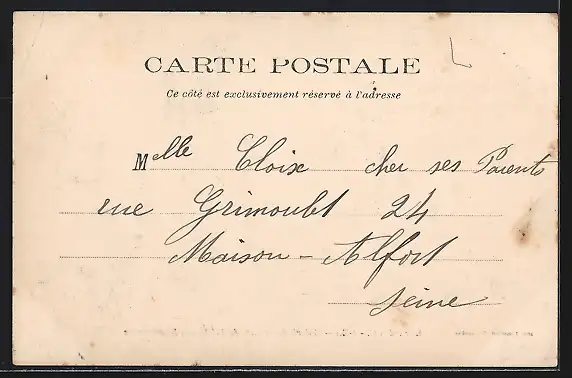 CARTE POSTALE
Ce côté est exclusivement réservé à l'adresse
Melle Cloix cher ses Parents
rue Grimoult 24
Maison-Alfort
Seine